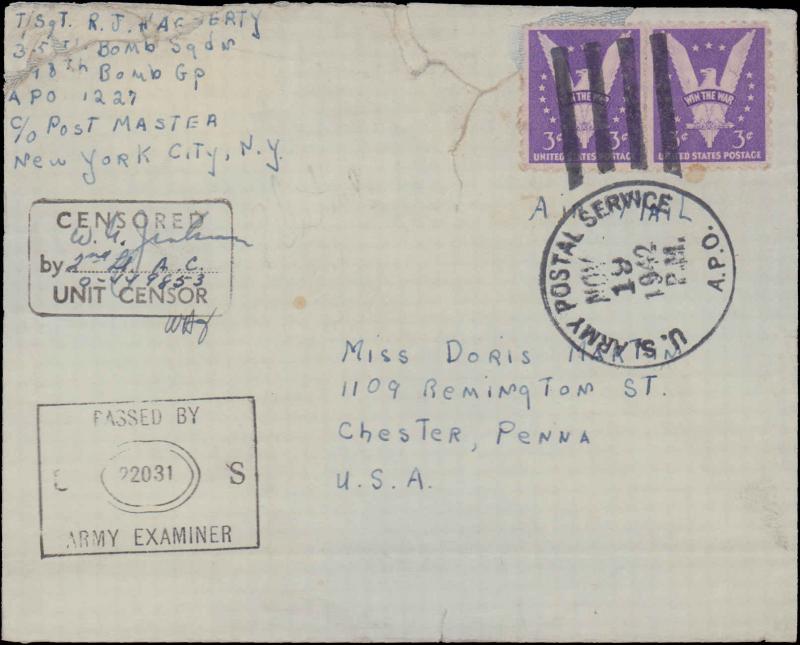 T/Sgt. R. J. HAGGERTY
35th Bomb Sqdn
98th Bomb Gp
APO 1227
c/o Post MASTER
New York City, N.Y.
WIN THE WAR
3¢ 3¢
UNITED STATES POSTAGE
WIN THE WAR
3¢ 3¢
UNITED STATES POSTAGE
AIR MAIL
U.S. ARMY POSTAL SERVICE
A.P.O.
NOV
19
1942
P.M.
CENSORED
W. G.
by 2nd Lt. A.C.
O-449853
UNIT CENSOR
Miss Doris
1109 Remington St.
Chester, Penna
U.S.A.
PASSED BY
U 22031 S
ARMY EXAMINER